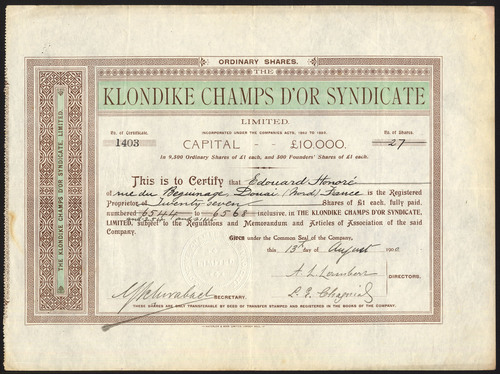 ORDINARY SHARES.
THE
KLONDIKE CHAMPS D'OR SYNDICATE
LIMITED.
INCORPORATED UNDER THE COMPANIES ACTS, 1862 TO 1893.
No. of Certificate.
1403
CAPITAL — £10,000.
No. of Shares.
27
In 9,500 Ordinary Shares of £1 each, and 500 Founders' Shares of £1 each.
This is to Certify that Edouard Honoré
of rue du Beguinage, Douai (Nord) France is the Registered
Proprietor of Twenty-seven Shares of £1 each, fully paid,
numbered 6544 to 6568 inclusive, in THE KLONDIKE CHAMPS D'OR SYNDICATE,
LIMITED, subject to the Regulations and Memorandum and Articles of Association of the said
Company.
Given under the Common Seal of the Company,
this 13th day of August 1900.
DIRECTORS.
SECRETARY.
THESE SHARES ARE ONLY TRANSFERABLE BY DEED OF TRANSFER STAMPED AND REGISTERED IN THE BOOKS OF THE COMPANY.
THE KLONDIKE CHAMPS D'OR SYNDICATE, LIMITED.